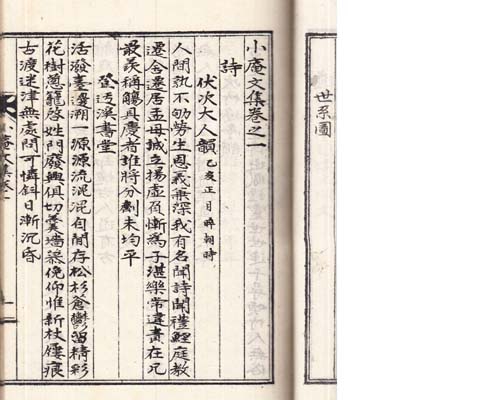 世系圖
小庵文集卷之一
詩
伏次大人韻 乙亥正月晬朝時
人間孰不劬勞生恩義兼深我有名聞詩聞禮鯉庭教
遷舍遷居孟母誠立揚虛負慚爲子湛樂常違責在兄
最羨稱觴具慶者誰將分劑未均平
登溪書堂
活潑臺邊溯一源源流混混自閒存松杉蓊鬱留精彩
花樹蔥籠啓姓門發興俱切羹墻慕俛仰惟新杖屨痕
古渡迷津無處問可憐斜日漸沉昏
小庵文集卷一